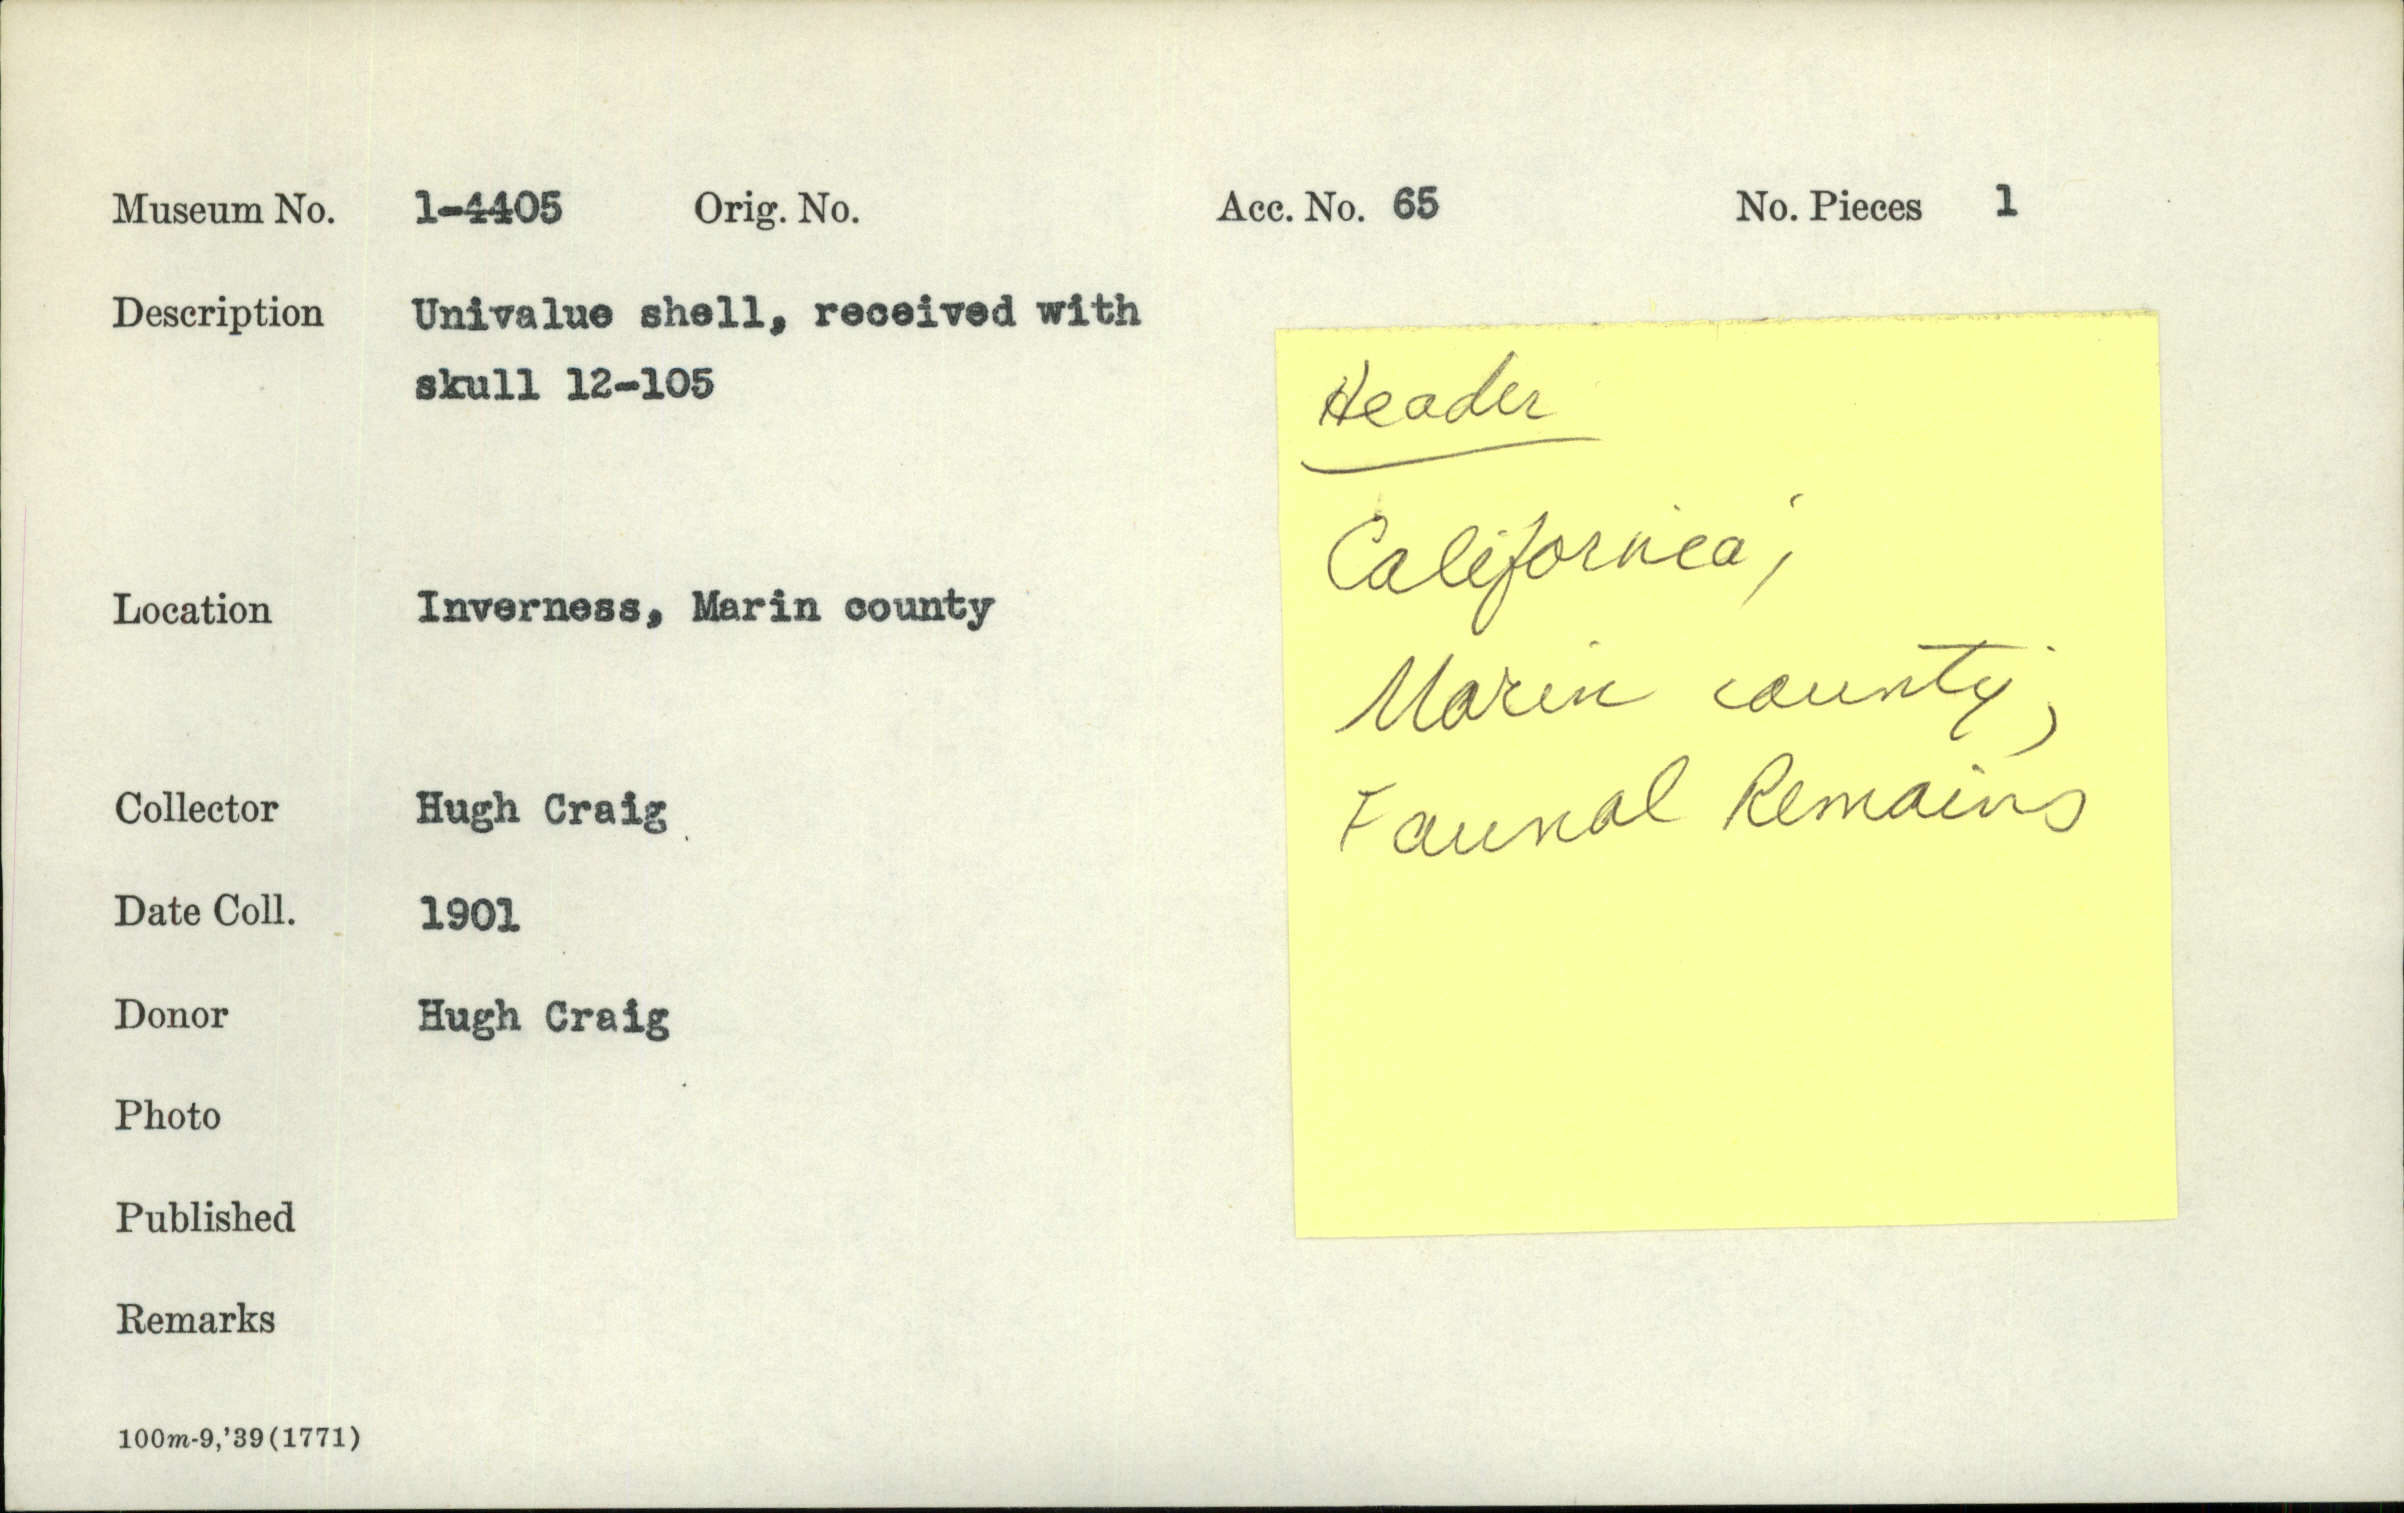 Museum No. 1-4405 Orig. No. Acc. No. 65 No. Pieces 1
Description Univalue shell, received with
skull 12-105
Header
California;
Marin county;
Faunal Remains
Location Inverness, Marin county
Collector Hugh Craig
Date Coll. 1901
Donor Hugh Craig
Photo
Published
Remarks
100m-9,'39(1771)